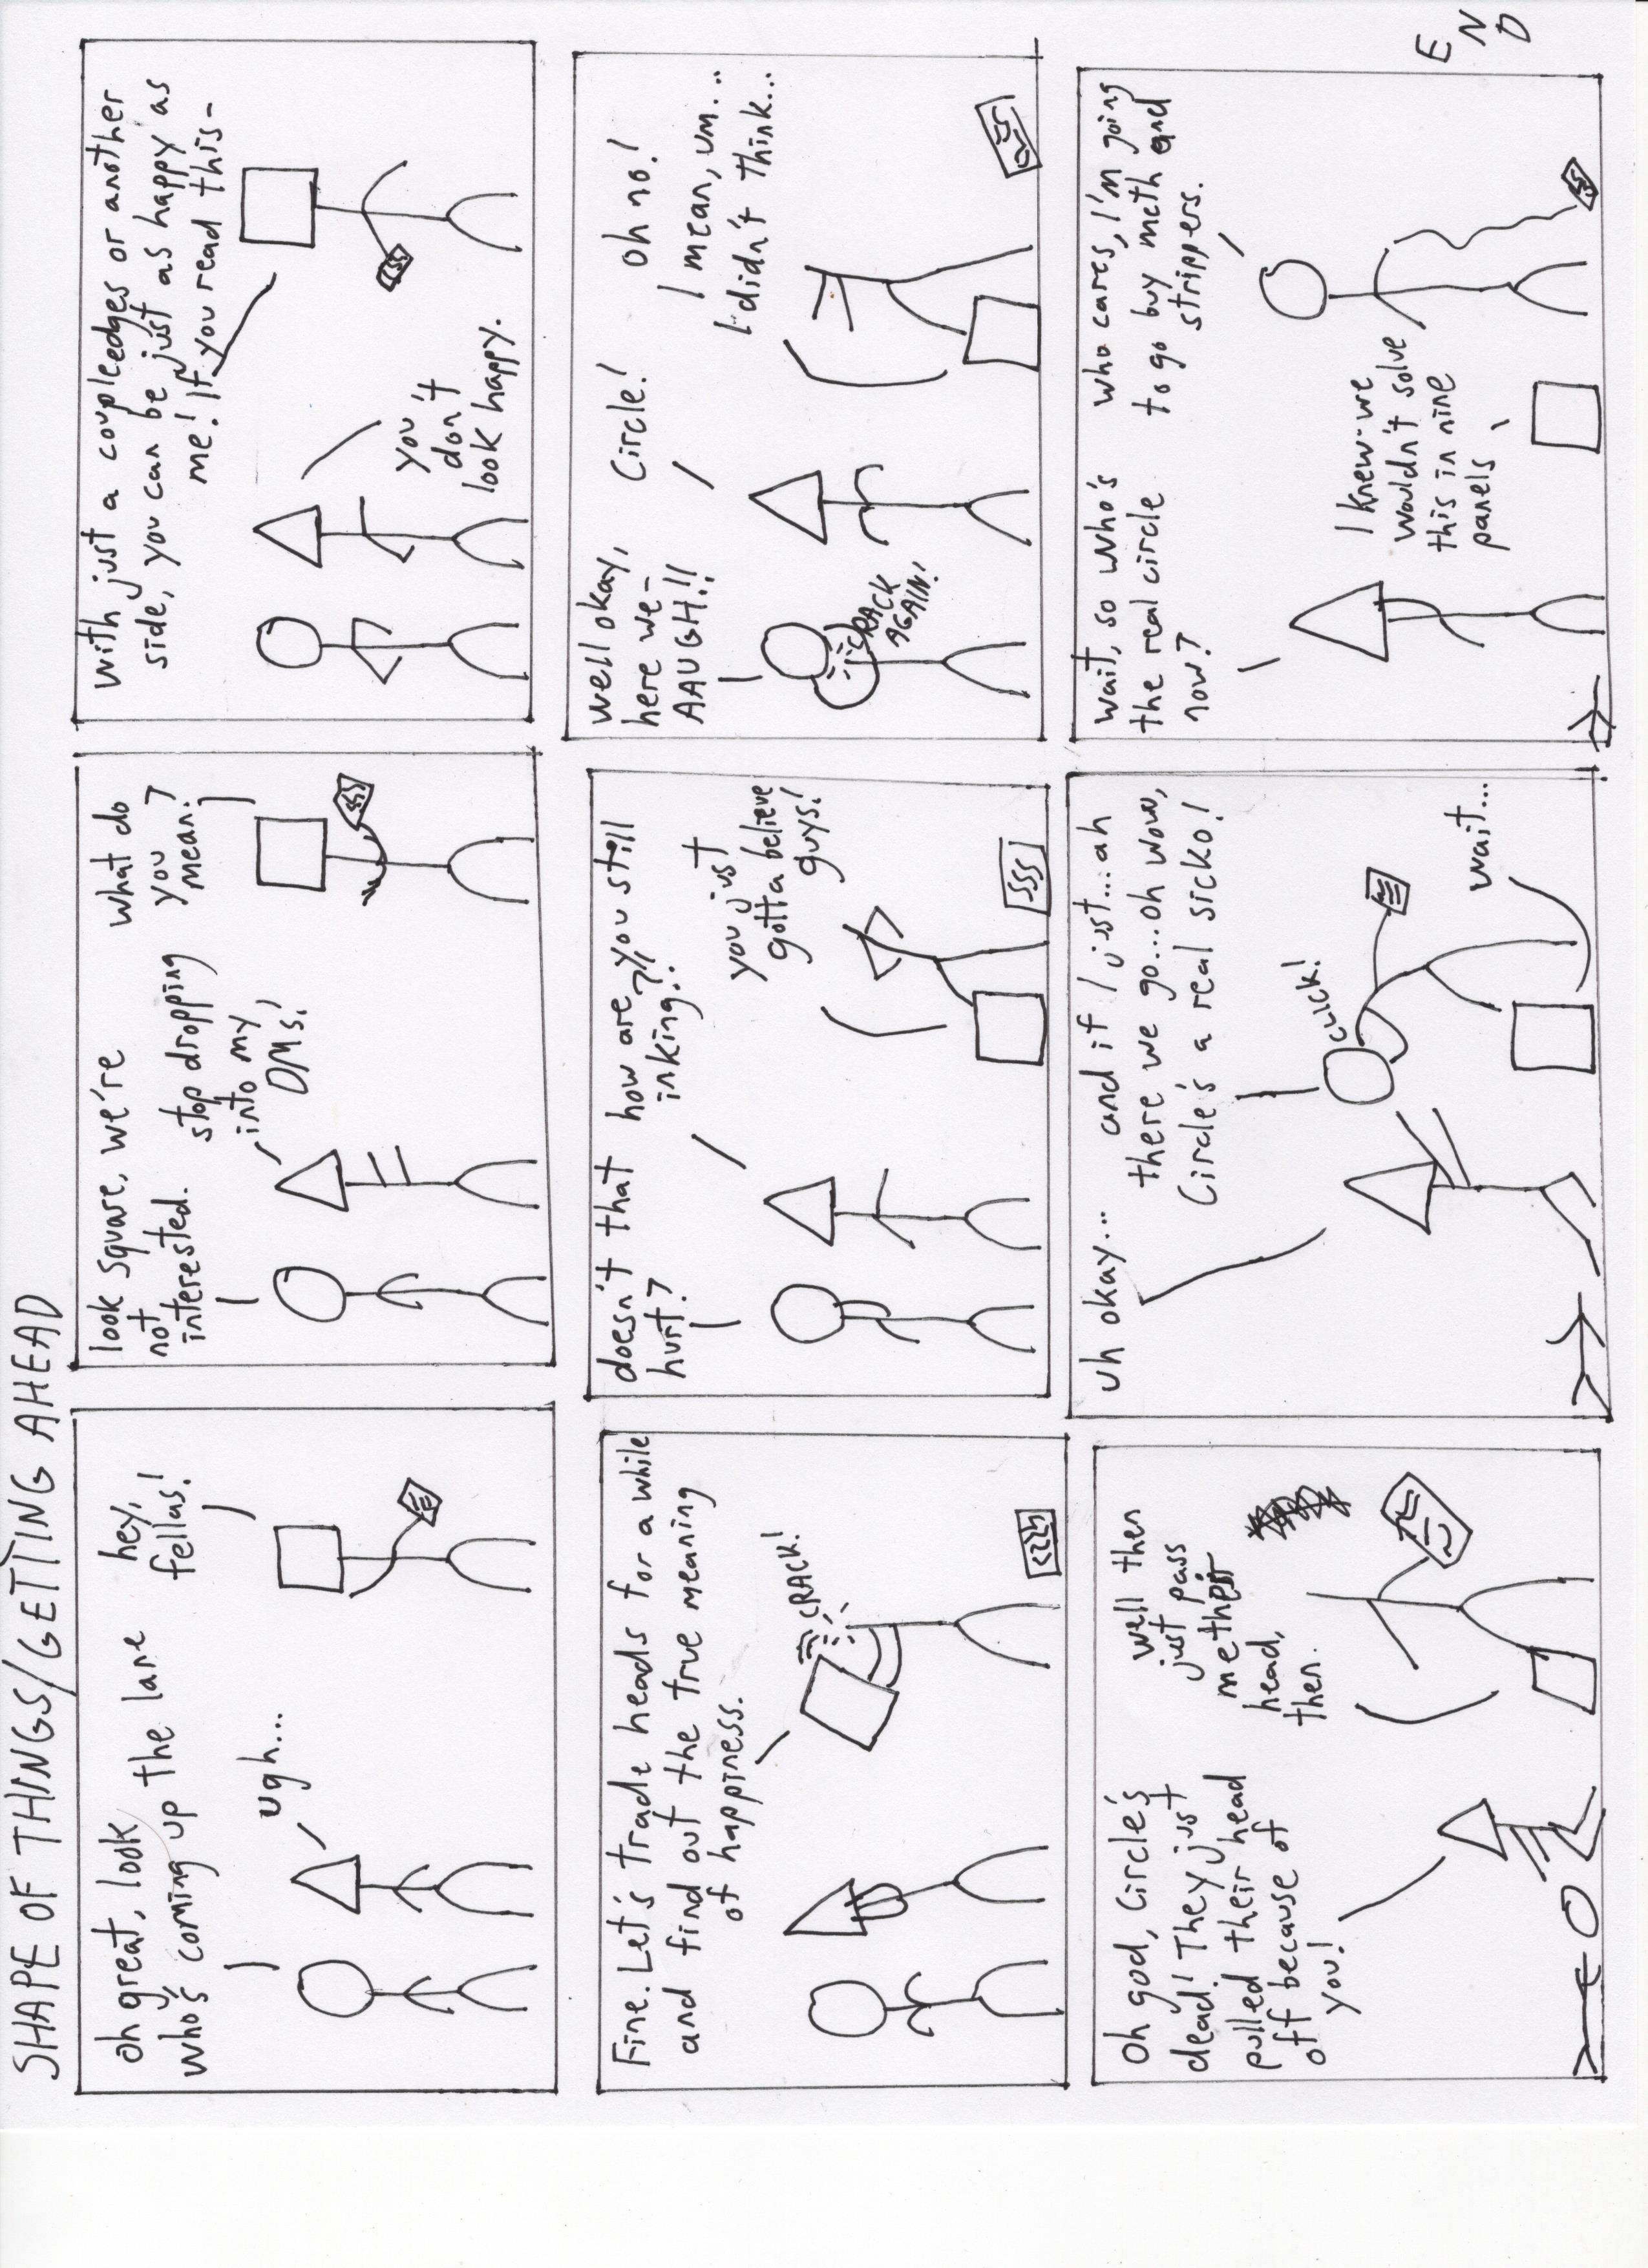 SHAPE OF THINGS/GETTING AHEAD
oh great, look
who's coming up the lane
ugh...
hey,
fellas!
look Square, we're
not
interested.
stop dropping
into my
DMs!
what do
you
mean?
with just a couple edges or another
side, you can be just as happy as
me! If you read this-
you
don't
look happy.
Fine. Let's trade heads for a while
and find out the true meaning
of happiness.
CRACK!
doesn't that
hurt?
how are you still
inking?!!
you just
gotta believe
guys!
well okay,
here we-
AAUGH!!
CRACK
AGAIN!
Circle!
oh no!
I mean, um...
I didn't think...
Oh god, Circle's
dead! They just
pulled their head
off because of
you!
well then
just pass
me their
head,
then.
uh okay...
and if I just...ah
there we go...oh wow,
Circle's a real sicko!
CLICK!
wait...
wait, so who's
the real circle
now?
I knew we
wouldn't solve
this in nine
panels
who cares, I'm going
to go buy meth and
strippers.
END